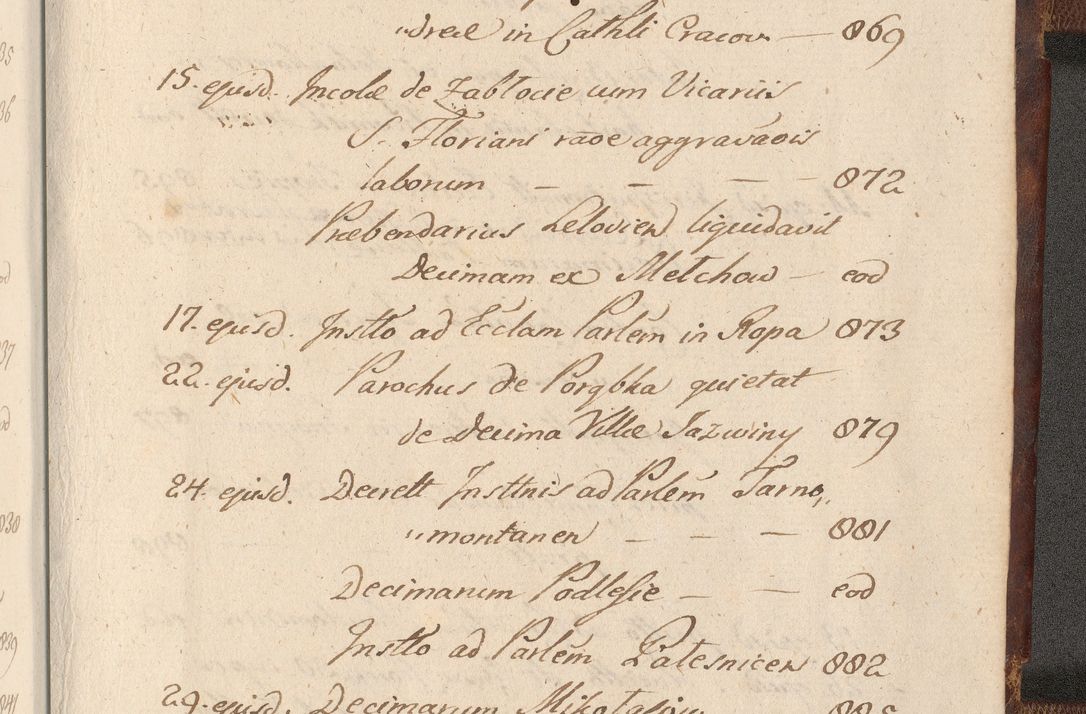 „dreæ in Cathli Cracov. — 869
15. ejusd. Incolæ de Zabłocie cum Vicariis
S. Floriani raõe aggravaõis
laborum — — — — 872
Præbendarius Leloviens liquidavit
Decimam ex Mełchow — eod
17. ejusd. Instto ad Ecclam Parlem in Ropa 873
22. ejusd. Parochus de Porąbka quietat
de Decima Villæ Jazwiny 879
24. ejusd. Decrett Insttnis ad Parlem Tarno„
„montanen — — — 881
Decimarum Podlesie — — eod
Instto ad Parlem Paleśnicen 882
29. ejusd. Decimarum Mikołajow